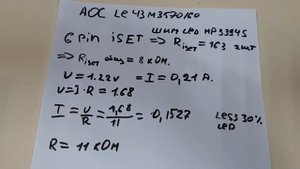 AOC LE43M3570/60
шим LED MP3394S
6 pin iSET => Riset = 163 2шт
=> Riset общ = 8 кОм.
U = 1.22v = I = 0,21 A.
U = I·R = 1.68
I = U/R = 1,68/11 = 0,1527
Less 30%
LED
R = 11 кОм